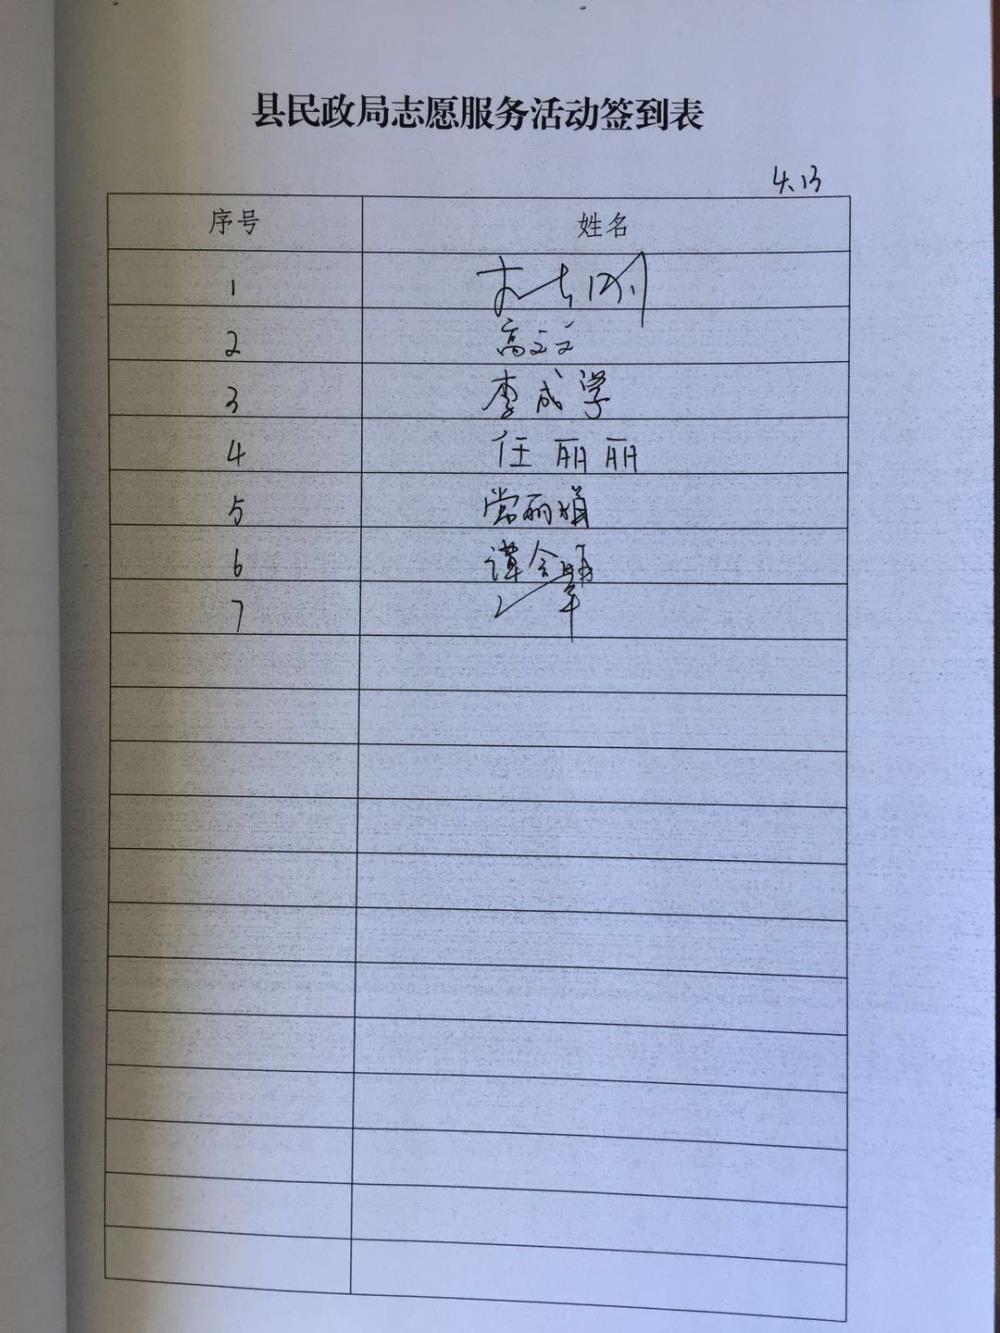 县民政局志愿服务活动签到表
4.13
序号 姓名
1
2 高文文
3 李成学
4 任丽丽
5 常丽娟
6 谭会娟
7